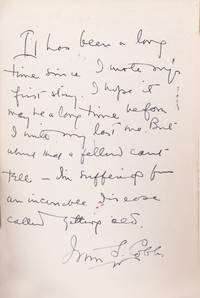 It has been a long
time since I wrote my
first story. I hope it
may be a long time before
I write my last one. But
what has a feller can't
tell — I'm suffering from
an incurable disease
called getting old.
Irvin S. Cobb